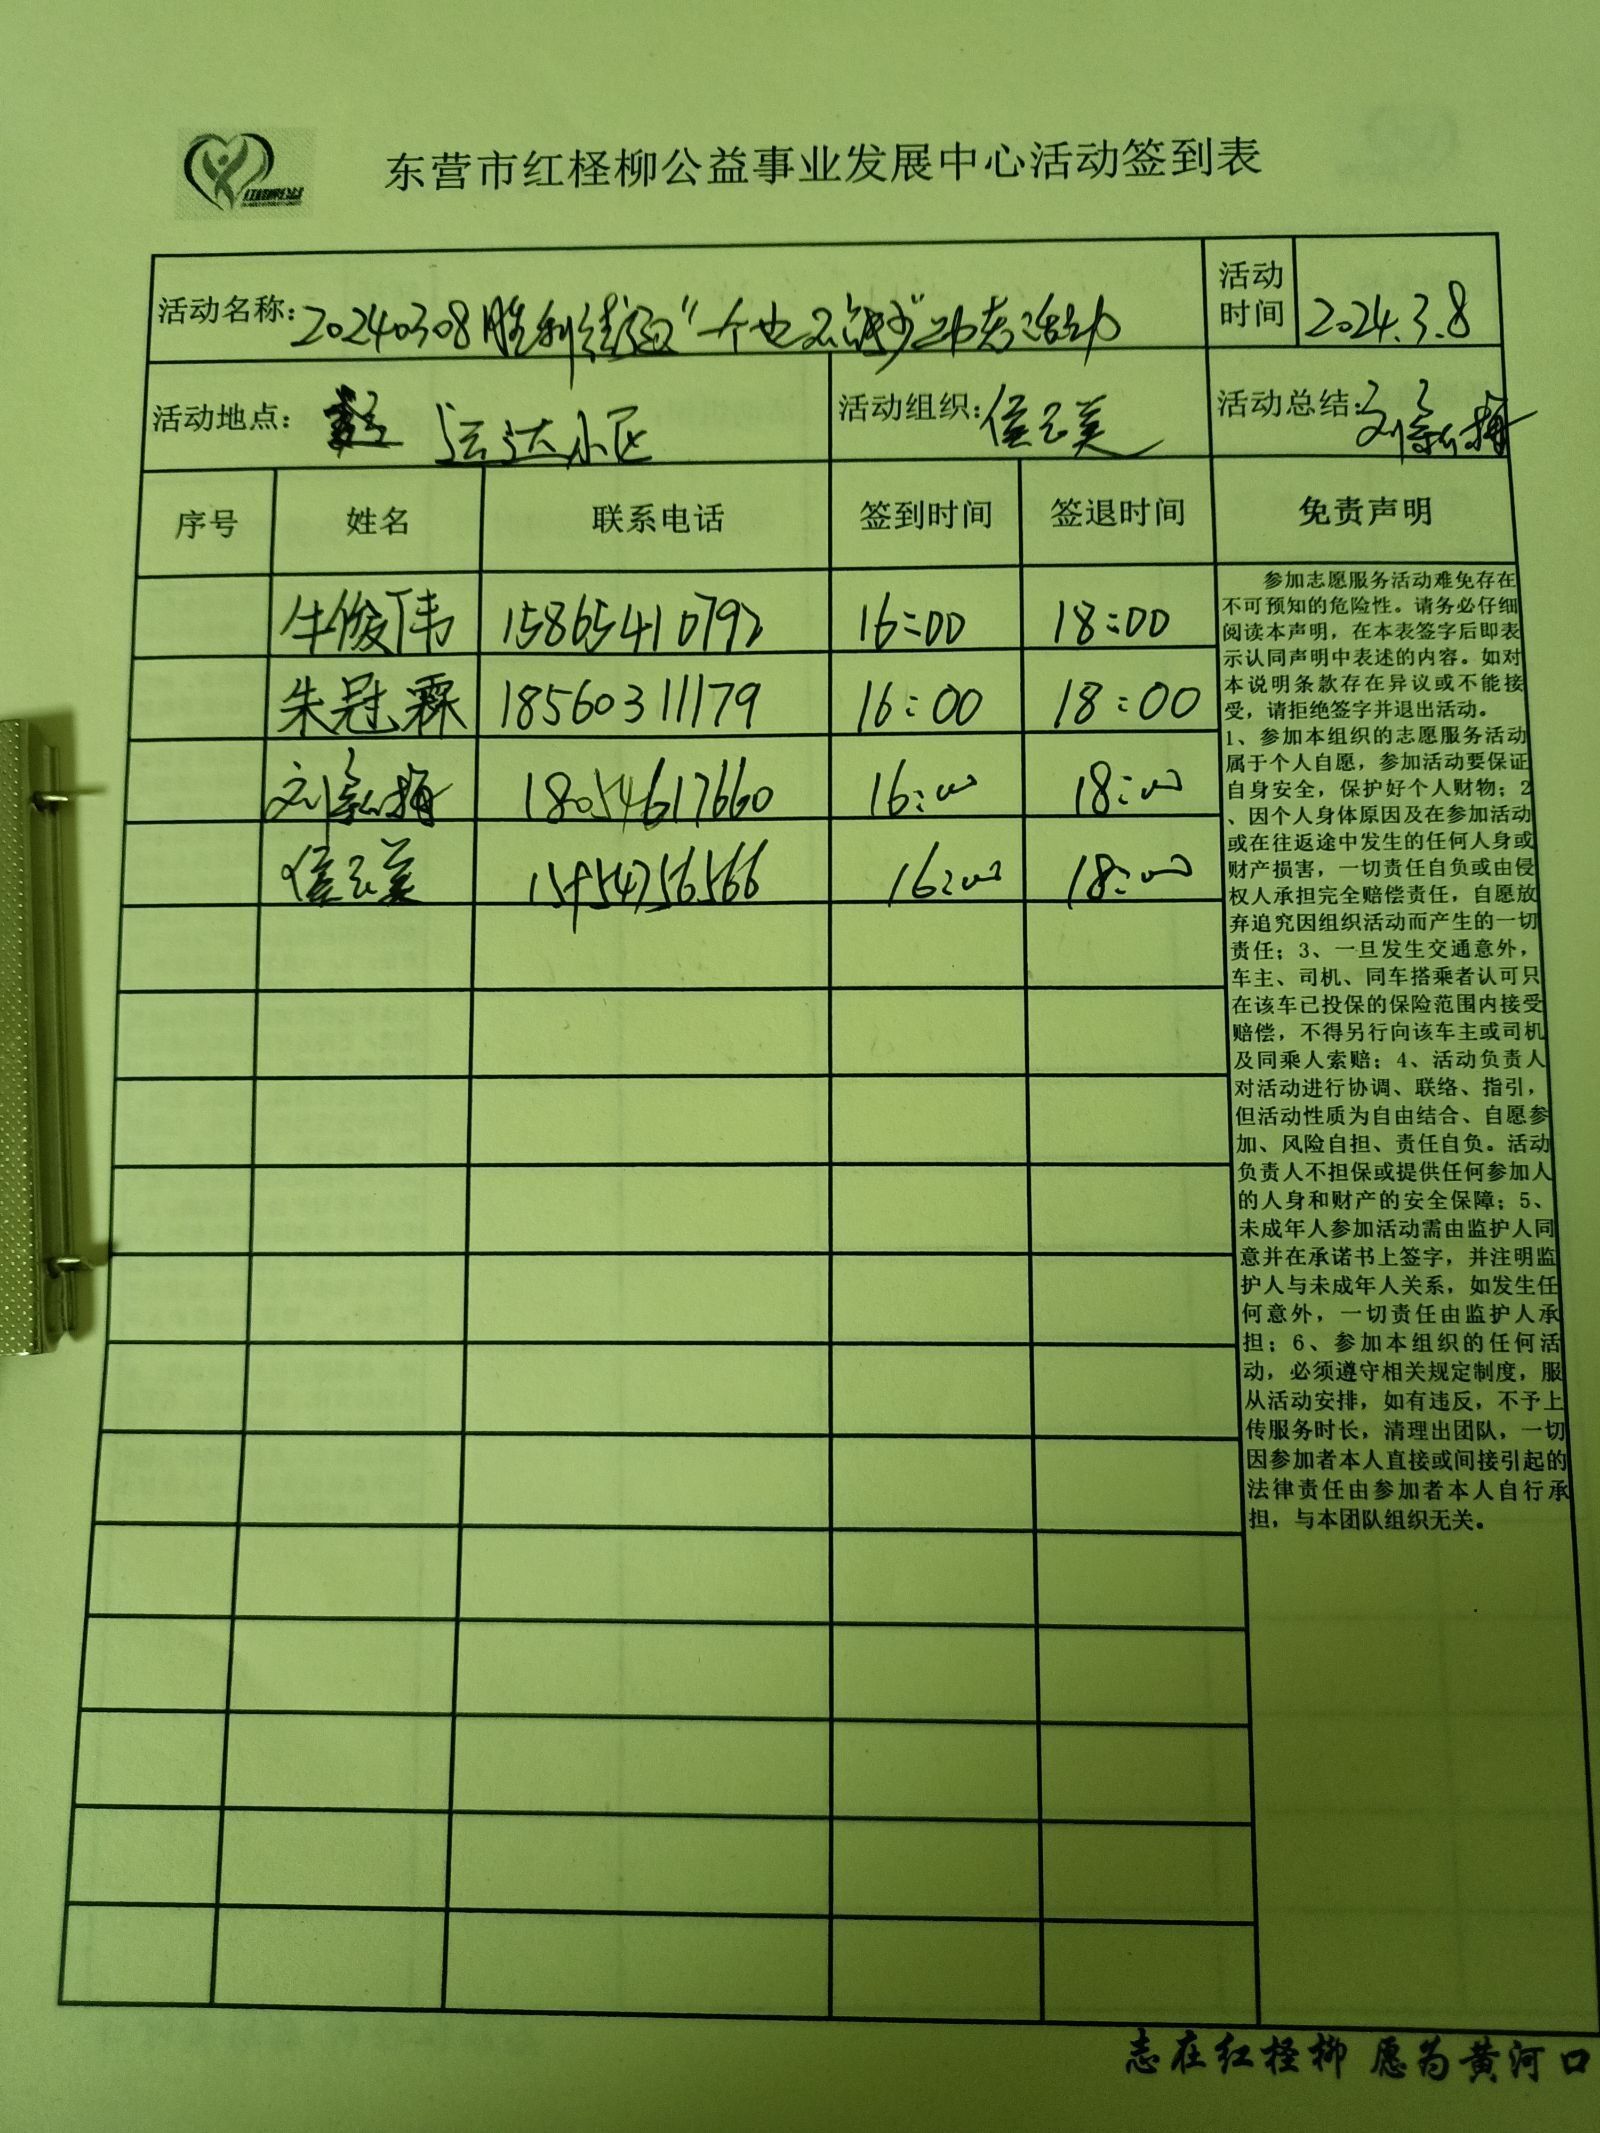 东营市红柽柳公益事业发展中心活动签到表
活动名称：20240308胜利街道"一个也不能少"助老活动
活动时间 2024.3.8
活动地点： 运达小区
活动组织：侯云美
活动总结：刘
序号 姓名 联系电话 签到时间 签退时间 免责声明
牛俊伟 15865410792 16:00 18:00
朱冠霖 18560311179 16:00 18:00
刘 18054617660 16:00 18:00
侯云美 15954756566 16:00 18:00
参加志愿服务活动难免存在
不可预知的危险性。请务必仔细
阅读本声明，在本表签字后即表
示认同声明中表述的内容。如对
本说明条款存在异议或不能接
受，请拒绝签字并退出活动。
1、参加本组织的志愿服务活动
属于个人自愿，参加活动要保证
自身安全，保护好个人财物；2
、因个人身体原因及在参加活动
或在往返途中发生的任何人身或
财产损害，一切责任自负或由侵
权人承担完全赔偿责任，自愿放
弃追究因组织活动而产生的一切
责任；3、一旦发生交通意外，
车主、司机、同车搭乘者认可只
在该车已投保的保险范围内接受
赔偿，不得另行向该车主或司机
及同乘人索赔；4、活动负责人
对活动进行协调、联络、指引，
但活动性质为自由结合、自愿参
加、风险自担、责任自负。活动
负责人不担保或提供任何参加人
的人身和财产的安全保障；5、
未成年人参加活动需由监护人同
意并在承诺书上签字，并注明监
护人与未成年人关系，如发生任
何意外，一切责任由监护人承
担；6、参加本组织的任何活
动，必须遵守相关规定制度，服
从活动安排，如有违反，不予上
传服务时长，清理出团队，一切
因参加者本人直接或间接引起的
法律责任由参加者本人自行承
担，与本团队组织无关。
志在红柽柳 愿为黄河口